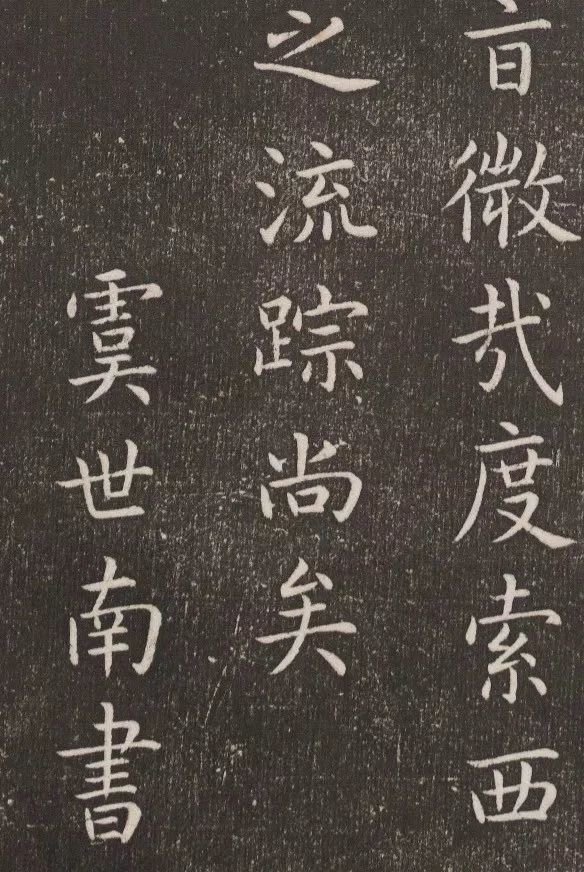 微哉度索西
之流踪尚矣
虞世南書